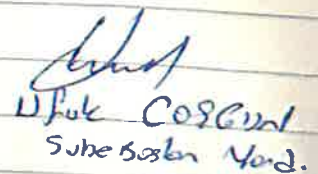 Ufuk COŞGUN
Şube Başkan Yard.